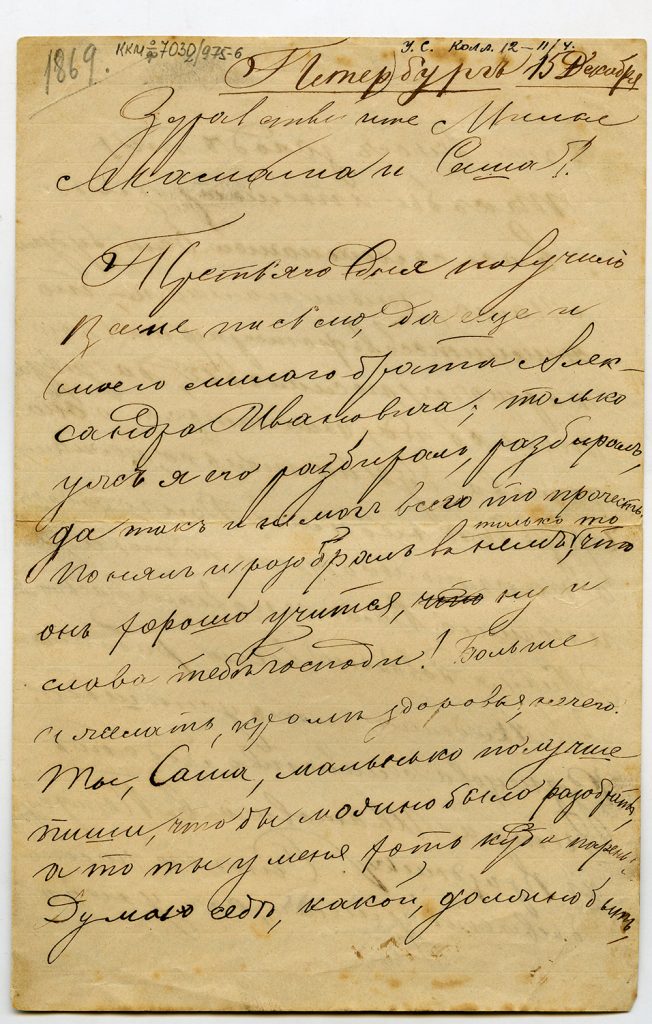 1869.
ККМ 7030/975-6
У.С. Колл. 12-11/4.
Петербургъ 15 Декабря
Здравствуйте Милые
Мамаша и Саша!
Третьяго дня получилъ
Ваше письмо, да еще и
моего милаго брата Алек-
сандра Ивановича; только
ужъ я его разбиралъ, разбиралъ,
да такъ и не могъ всего то прочесть.
Понялъ и разобралъ въ немъ только то, что
онъ хорошо учится, что ну и
слава тебѣ господи! Больше
и желать, кромѣ здоровья, нечего.
Ты, Саша, маленько получше
пиши, что бы можно было разобрать,
а то ты у меня хоть куда парень!
Думаю себѣ, какой, должно быть,